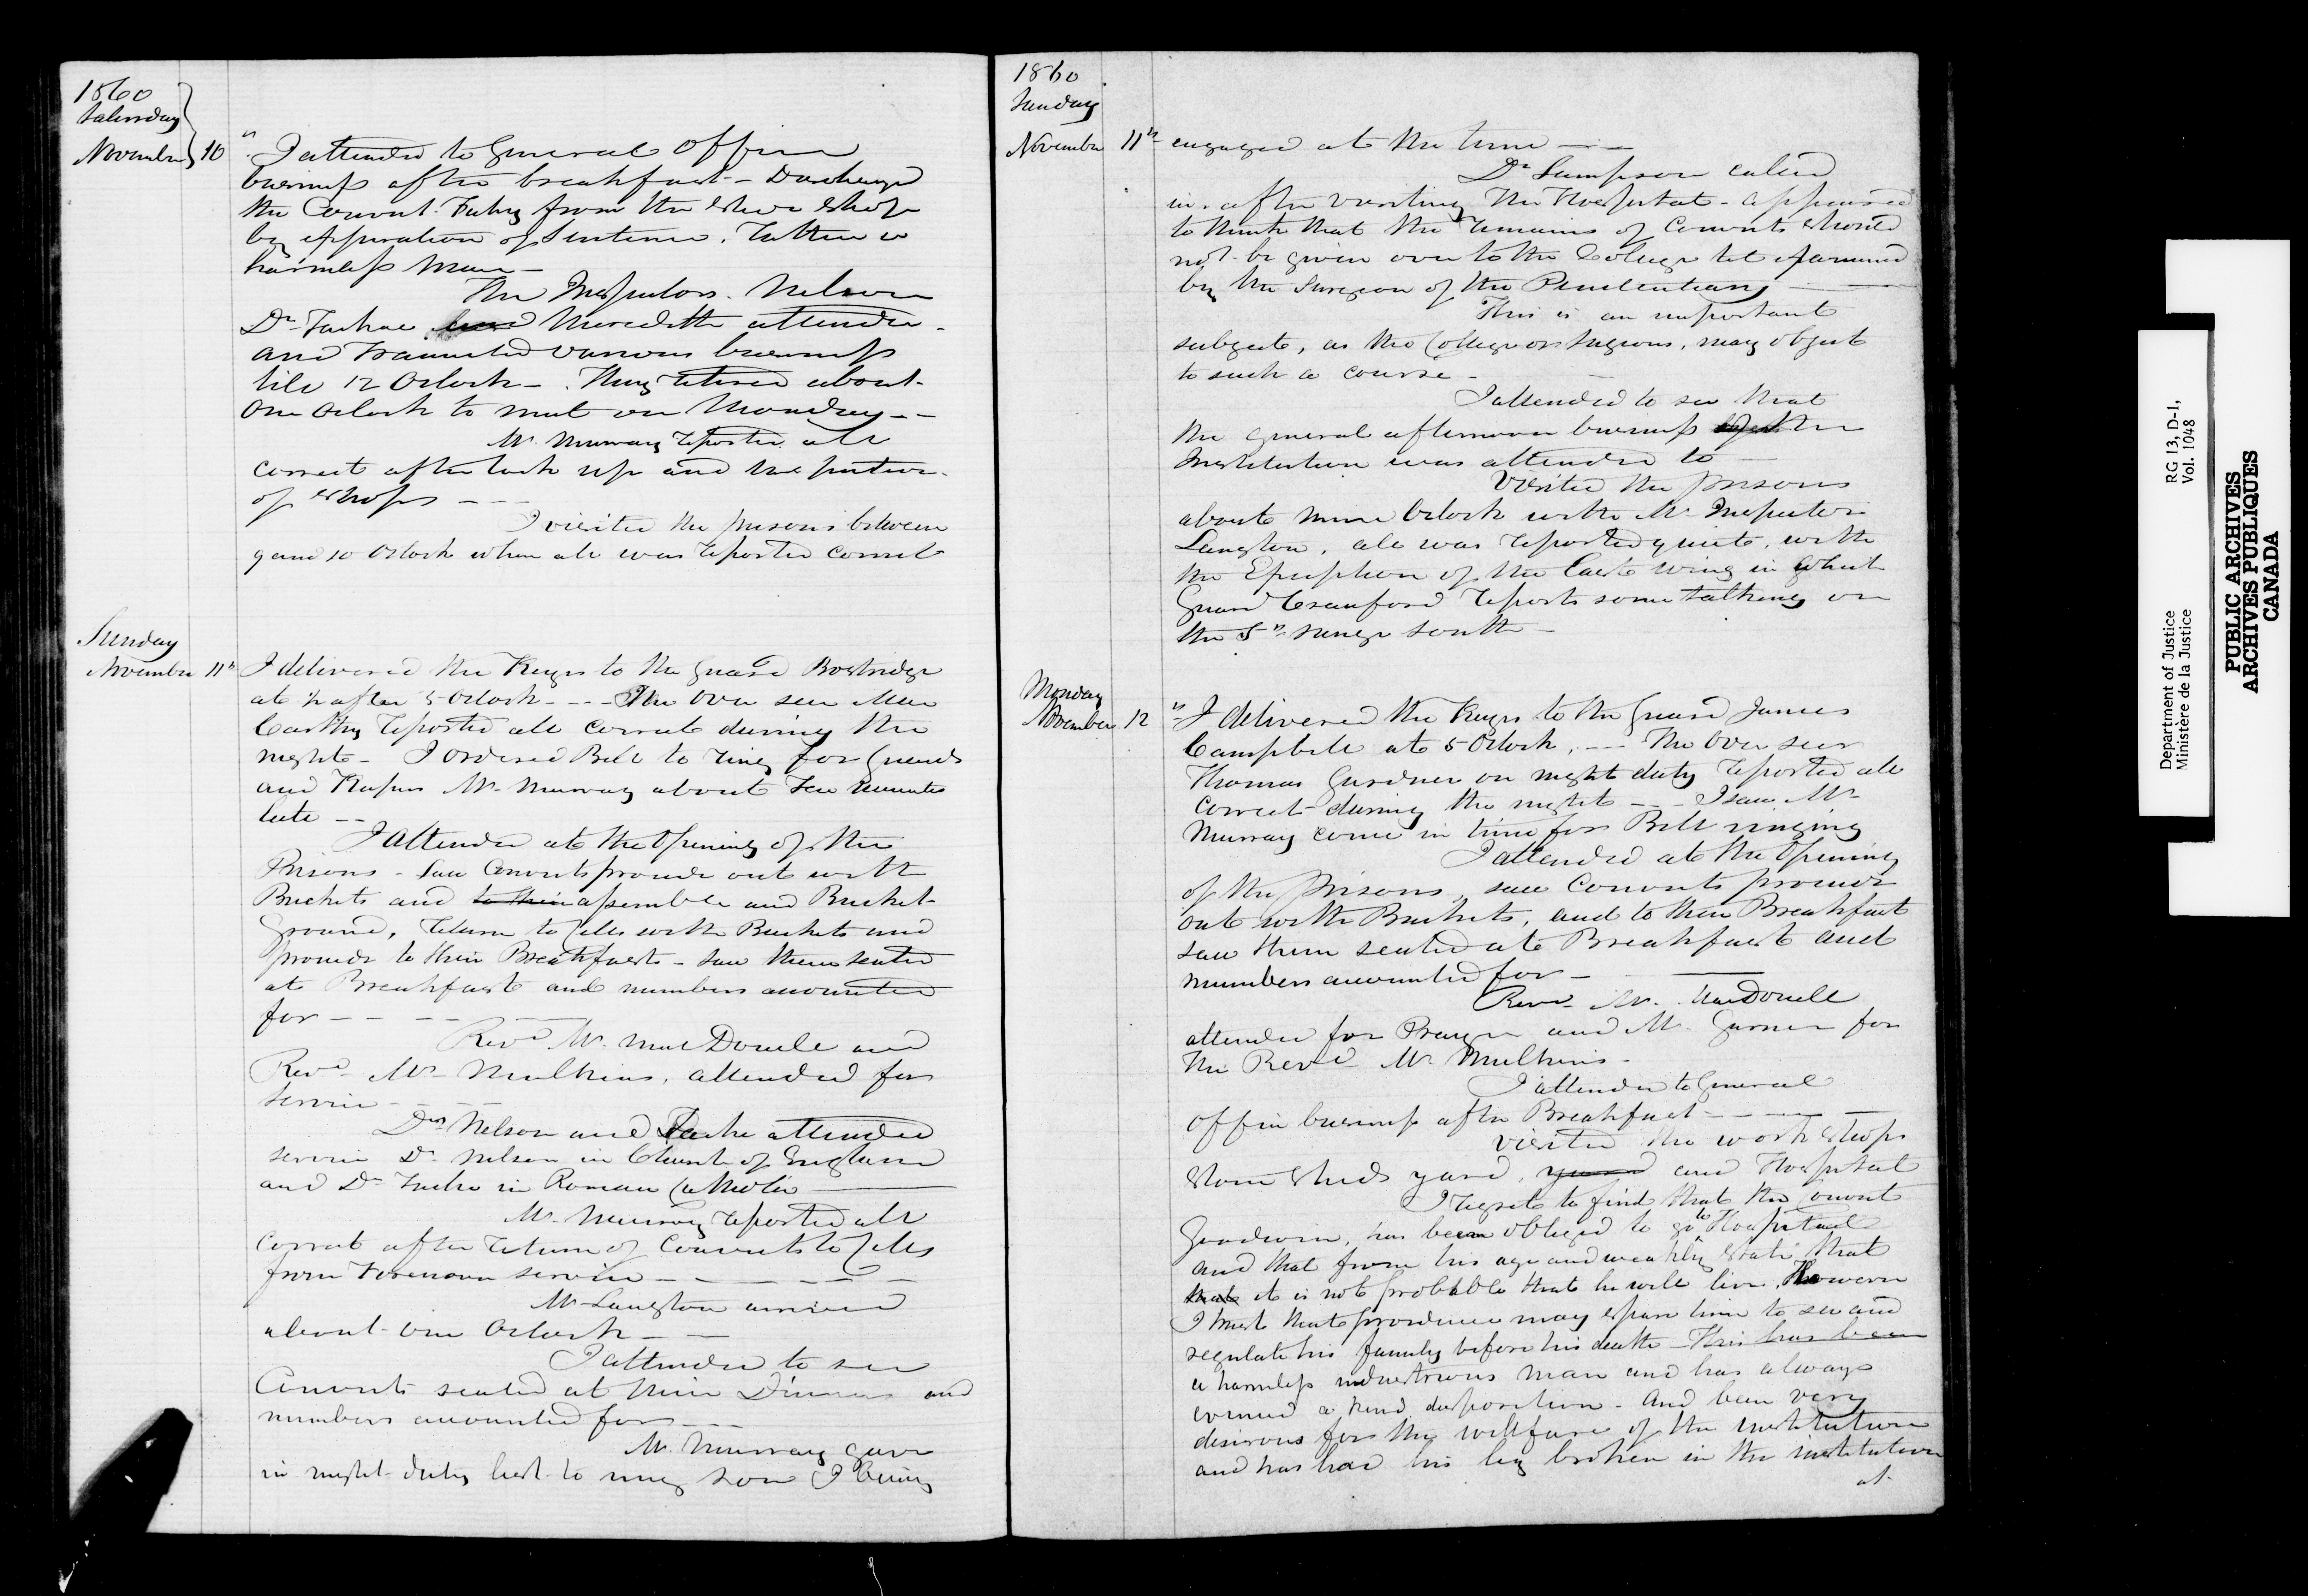 1860
Saturday
November 10th I attended to General Office
business after breakfast - Discharged
the Convict Fahey from the Shoe Shop
by expiration of Sentence. Rather a
harmless man -
The Inspectors. Nelson
Dr Taché and Meredith attended
and transacted various business
till 12 Oclock - They retired about
One Oclock to meet on Monday - -
Mr Murray reported all
correct after lock up and inspection
of Shops - - -
I visited the prisons between
9 and 10 Oclock when all was reported correct
Sunday
November 11th I delivered the Keys to the Guard Bostridge
at ½ after 5 Oclock - - - The Over seer Mac
Carthy reported all correct during the
night - I ordered Bell to ring for Guards
and Keepers Mr Murray about ten minutes
late - -
I attended at the Opening of the
Prisons - Saw Convicts proceed out with
Buckets and to their assemble and Bucket
Ground, return to Cells with Buckets and
proceed to their Breakfasts - saw them seated
at Breakfast and numbers accounted
for - - - -
Revd Mr MacDonell and
Revd Mr Mulkins, attended for
service - - -
Drs Nelson and Taché attended
service Dr Nelson in Church of England
and Dr Taché in Roman Catholic
Mr Murray reported all
correct after return of Convicts to Cells
from Forenoon service - - - - -
Mr Langton arrived
about One Oclock - -
I attended to see
Convicts seated at their Dinners and
numbers accounted for - - -
Mr Murray gave
in night duty list to my son I being
1860
Sunday
November 11th engaged at the time - -
Dr Sampson called
in. after visiting the Hospital - appeared
to think that the remains of Convicts should
not be given over to the College til examined
by the Surgeon of the Penitentiary
This is an important
subject, as the College or Surgeons, may object
to such a course -
I attended to see that
the general afternoon business of the
Institution was attended to
Visited the prisons
about nine Oclock with Mr Inspector
Langton, all was reported quiet, with
the Exception of the East wing in which
Guard Crawford reports some talking on
the 5th range South -
Monday
November 12th I delivered the Keys to the Guard James
Campbell at 5 Oclock. - - - The Over seer
Thomas Gardner on night duty reported all
correct during the night - - I saw Mr
Murray come in time for Bell ringing
I attended at the Opening
of the Prisons, saw Convicts proceed
out with Buckets, and to their Breakfast
saw them seated at Breakfast and
numbers accounted for -
Revd Mr. MacDonell
attended for Prayer and Mr. Garner for
the Revd Mr Mulkins -
I attended to General
Office business after Breakfast - - - -
Visited the work Shops
Stone Sheds yard, yard and Hospital
I regret to find that the Convict
Goodwin, has been obliged to go to Hospital
and that from his age and weakly State that
that it is not probable that he will live, However
I trust that providence may spare him to see and
regulate his family before his death - This has been
a harmless industrious man and has always
evinced a kind disposition - And been very
desirous for the wellfare of the institution
and has had his leg broken in the institution
at
Department of Justice RG 13, D-1,
Ministère de la Justice Vol. 1048
PUBLIC ARCHIVES
ARCHIVES PUBLIQUES
CANADA